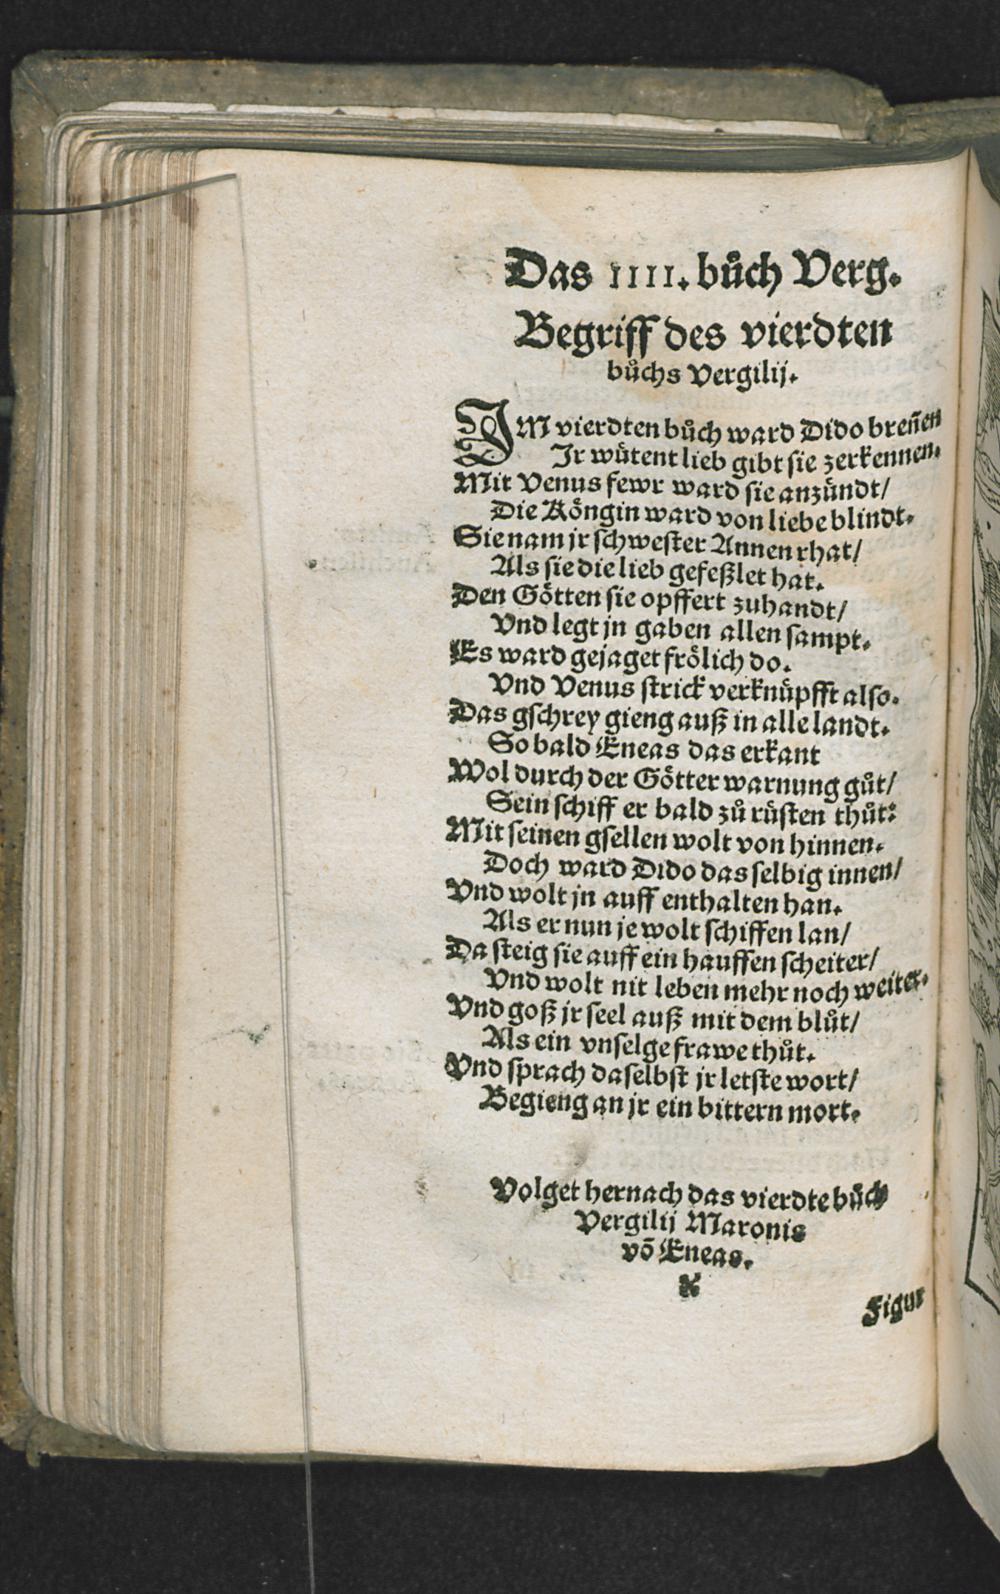 Das IIII. bůch Verg.
Begriff des vierdten
bůchs Vergilij.
IM vierdten bůch ward Dido breñen
Ir wütent lieb gibt sie zerkennen.
Mit Venus fewr ward sie anzündt/
Die Köngin ward von liebe blindt.
Sie nam jr schwester Annen rhat/
Als sie die lieb gefeßlet hat.
Den Götten sie opffert zuhandt/
Vnd legt jn gaben allen sampt.
Es ward gejaget frölich do.
Vnd Venus strick verknüpfft also.
Das gschrey gieng auß in alle landt.
So bald Eneas das erkant
Wol durch der Götter warnung gůt/
Sein schiff er bald zů rüsten thůt:
Mit seinen gsellen wolt von hinnen.
Doch ward Dido das selbig innen/
Vnd wolt jn auff enthalten han.
Als er nun je wolt schiffen lan/
Da steig sie auff ein hauffen scheiter/
Vnd wolt nit leben mehr noch weiter.
Vnd goß jr seel auß mit dem blůt/
Als ein vnselge frawe thůt.
Vnd sprach daselbst jr letste wort/
Begieng an jr ein bittern mort.
Volget hernach das vierdte bůch
Vergilij Maronis
võ Eneas.
Figur